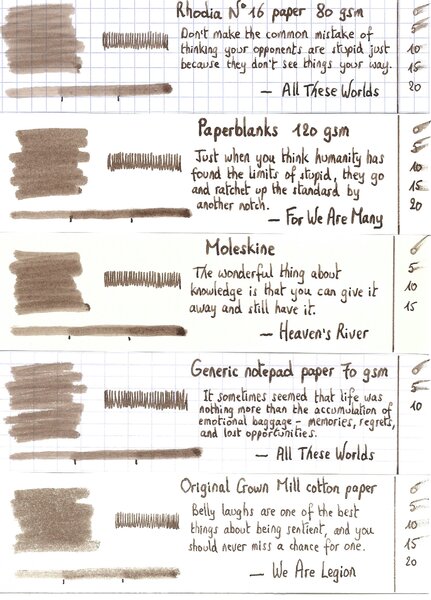 Rhodia N°16 paper 80 gsm
Don't make the common mistake of
thinking your opponents are stupid just
because they don't see things your way.
— All These Worlds
5
10
15
20
Paperblanks 120 gsm
Just when you think humanity has
found the limits of stupid, they go
and ratchet up the standard by
another notch.
— For We Are Many
5
10
15
20
Moleskine
The wonderful thing about
knowledge is that you can give it
away and still have it.
— Heaven's River
5
10
15
Generic notepad paper 70 gsm
It sometimes seemed that life was
nothing more than the accumulation of
emotional baggage – memories, regrets,
and lost opportunities.
— All These Worlds
5
10
Original Crown Mill cotton paper
Belly laughs are one of the best
things about being sentient, and you
should never miss a chance for one.
— We Are Legion
5
10
15
20